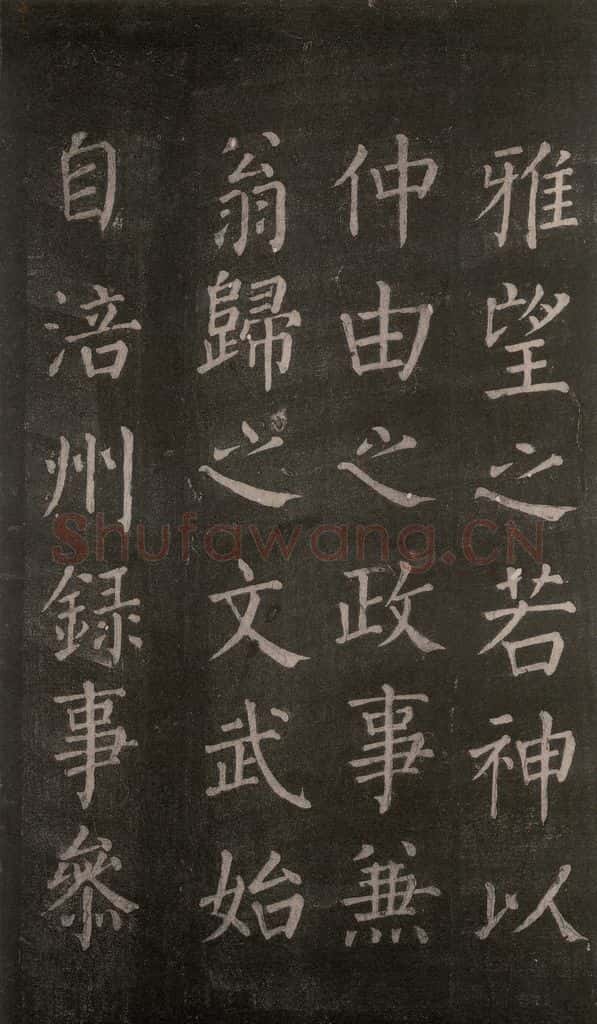 雅望之若神以
仲由之政事兼
翁歸之文武始
自涪州錄事參
Shufawang.CN